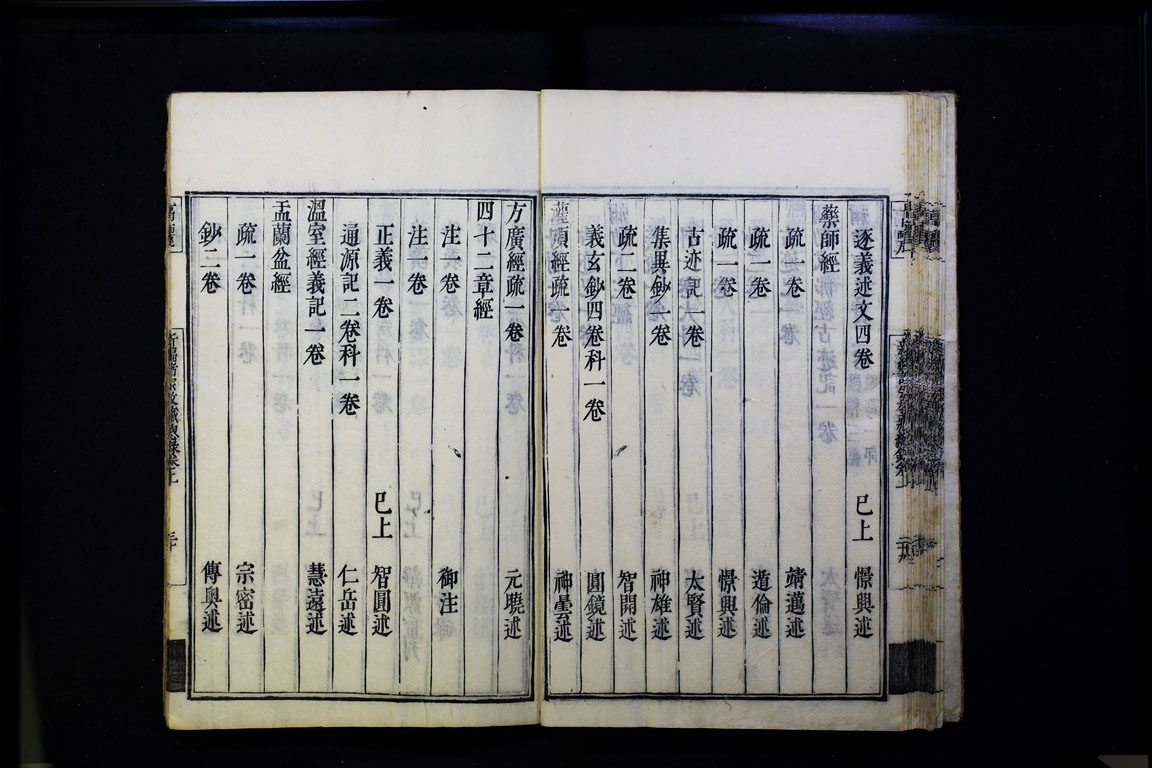 逐義述文四卷 已上 憬興述
藥師經
疏一卷 靖邁述
疏一卷 道倫述
疏一卷 憬興述
古迹記一卷 太賢述
集異鈔一卷 神雄述
疏二卷 智開述
義玄鈔四卷科一卷 圓鏡述
灌頂經疏一卷 神曇述
方廣經疏一卷 元曉述
四十二章經
注一卷 御注
注一卷
正義一卷 已上 智圓述
通源記二卷科一卷 仁岳述
溫室經義記一卷 慧遠述
盂蘭盆經
疏一卷 宗密述
鈔二卷 傳奧述